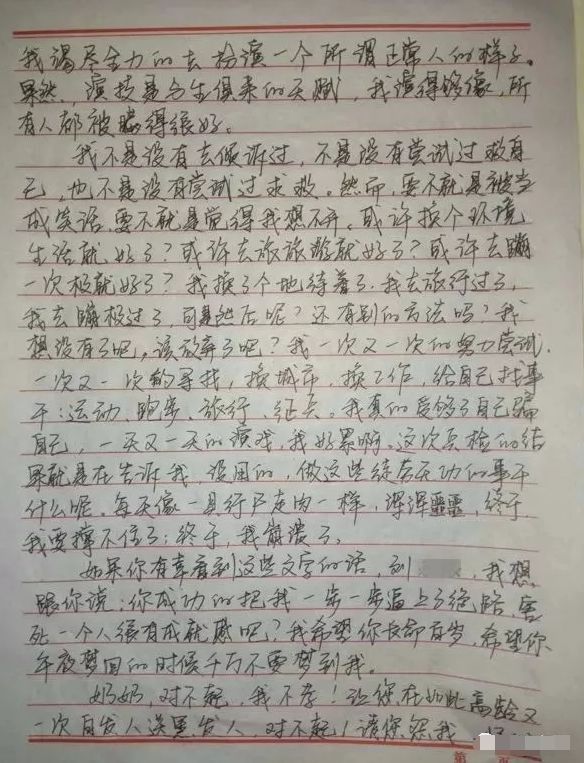 我竭尽全力的去扮演一个所谓正常人的样子。
果然,演技是与生俱来的天赋,我演得够像,所
有人都被瞒得很好。
我不是没有去倾诉过,不是没有尝试过救自
己,也不是没有尝试过求救。然而,要不就是被当
成笑话,要不就是觉得我想不开。或许换个环境
生活就好了?或许去旅旅游就好了?或许去蹦
一次极就好了?我换了个地待着了,我去旅行过了,
我去蹦极过了,可是然后呢?还有别的方法吗?我
想没有了吧,该放弃了吧?我一次又一次的努力尝试,
一次又一次的寻找,换城市,换工作,给自己找事
干:运动、跑步、旅行、征兵。我真的受够了自己骗
自己,一天又一天的演戏,我好累啊。这次兵检的结
果就是在告诉我,没用的,做这些徒劳无功的事干
什么呢。每天像一具行尸走肉一样,浑浑噩噩,终于
我要撑不住了;终于,我崩溃了。
如果你有幸看到这些文字的话,刘 ,我想
跟你说:你成功的把我一步一步逼上了绝路,害
死一个人很有成就感吧?我希望你长命百岁,希望你
午夜梦回的时候千万不要梦到我。
奶奶,对不起,我不孝!让您在如此高龄又
一次白发人送黑发人,对不起!请您恕我
第